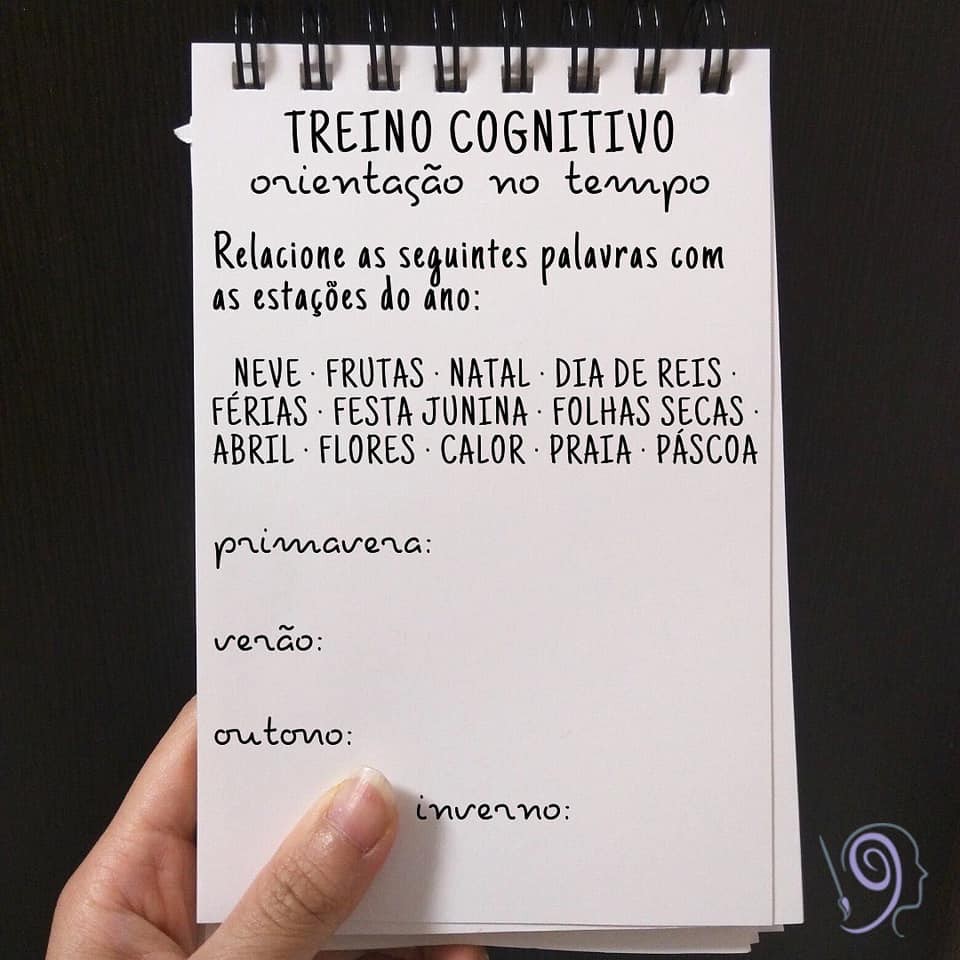 TREINO COGNITIVO
orientação no tempo
Relacione as seguintes palavras com
as estações do ano:
NEVE · FRUTAS · NATAL · DIA DE REIS ·
FÉRIAS · FESTA JUNINA · FOLHAS SECAS ·
ABRIL · FLORES · CALOR · PRAIA · PÁSCOA
primavera:
verão:
outono:
inverno: